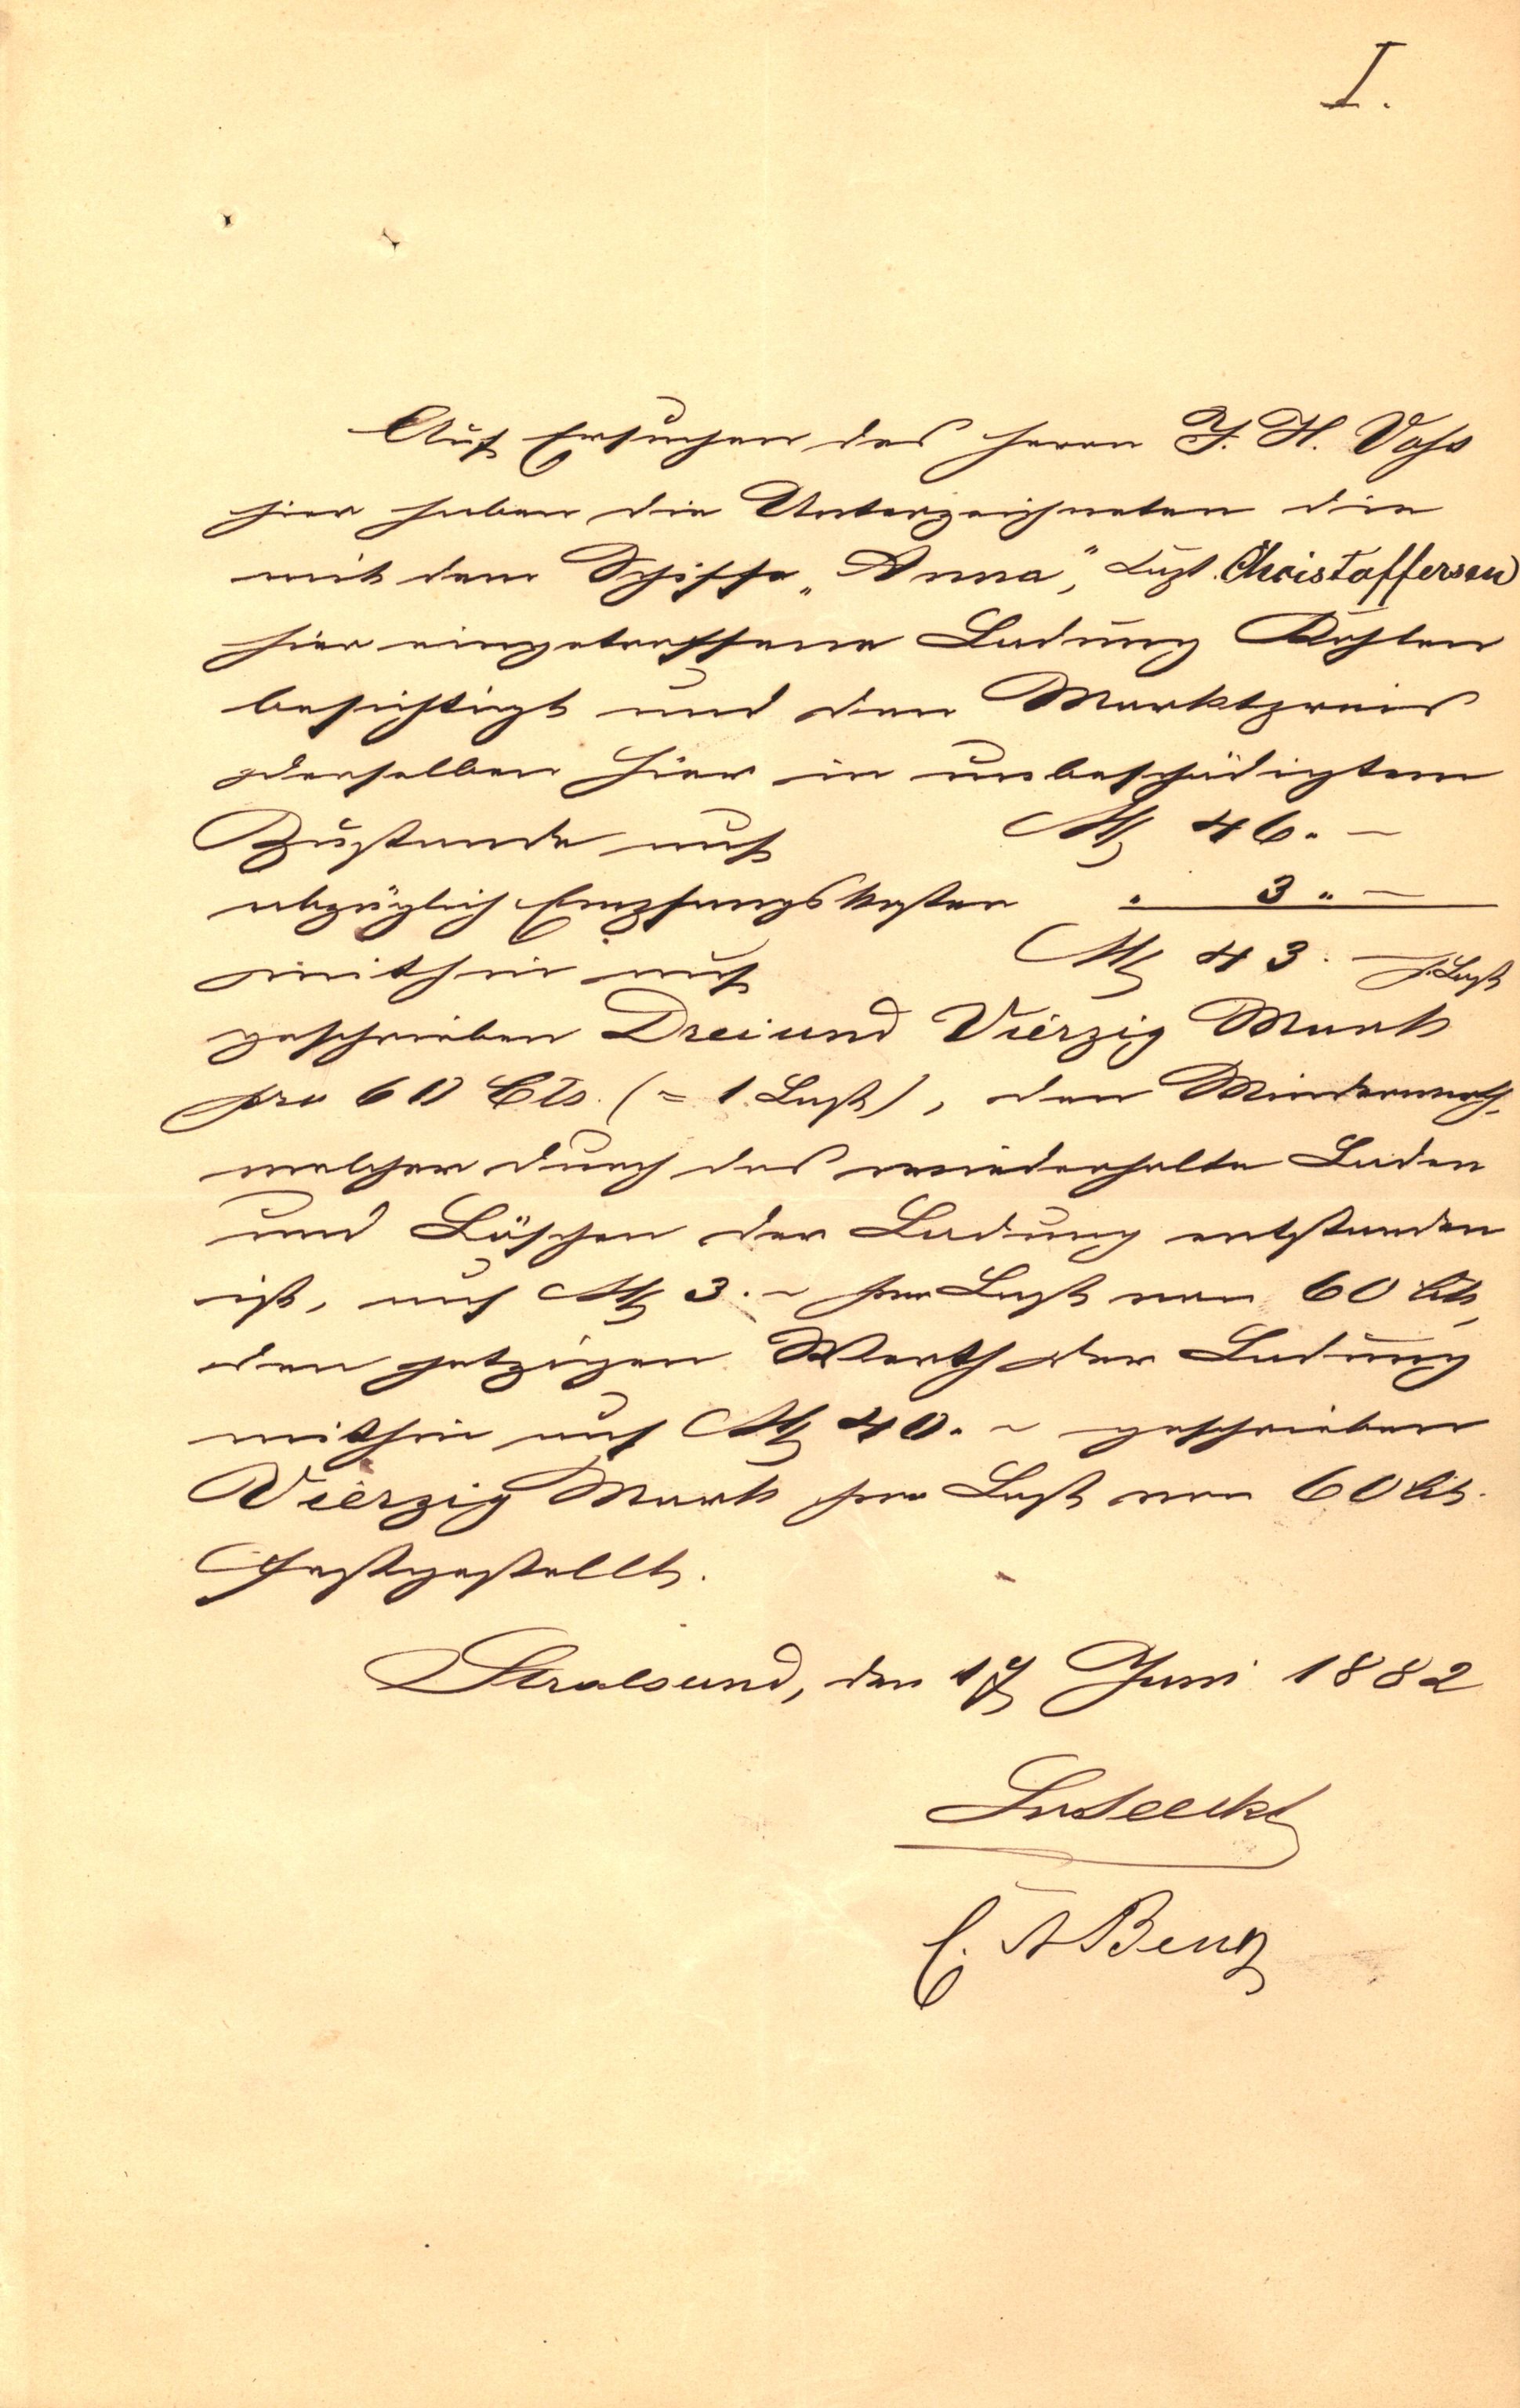 I.
Auf Ersuchen des Herrn J. H. Voss
hier haben die Unterzeichneten die
mit dem Schiffe „Anna", Capt. Christoffersen
hier eingetroffene Ladung Kohlen
besichtigt und den Marktpreis
derselben hier in unbeschädigtem
Zustande auf M 46. –
abzüglich Empfangskosten " 3 " –
mithin auf M 43. – p. Last
geschrieben Dreiund Vierzig Mark
pro 60 Ctr. (= 1 Last), den Minderwerth,
welcher durch das wiederholte Laden
und Löschen der Ladung entstanden
ist, auf M 3. – per Last von 60 Ctr,
den jetzigen Werth der Ladung
mithin auf M 40. – geschrieben
Vierzig Mark per Last von 60 Ctr.
festgestellt.
Stralsund, den 17 Juni 1882
C. A Benz